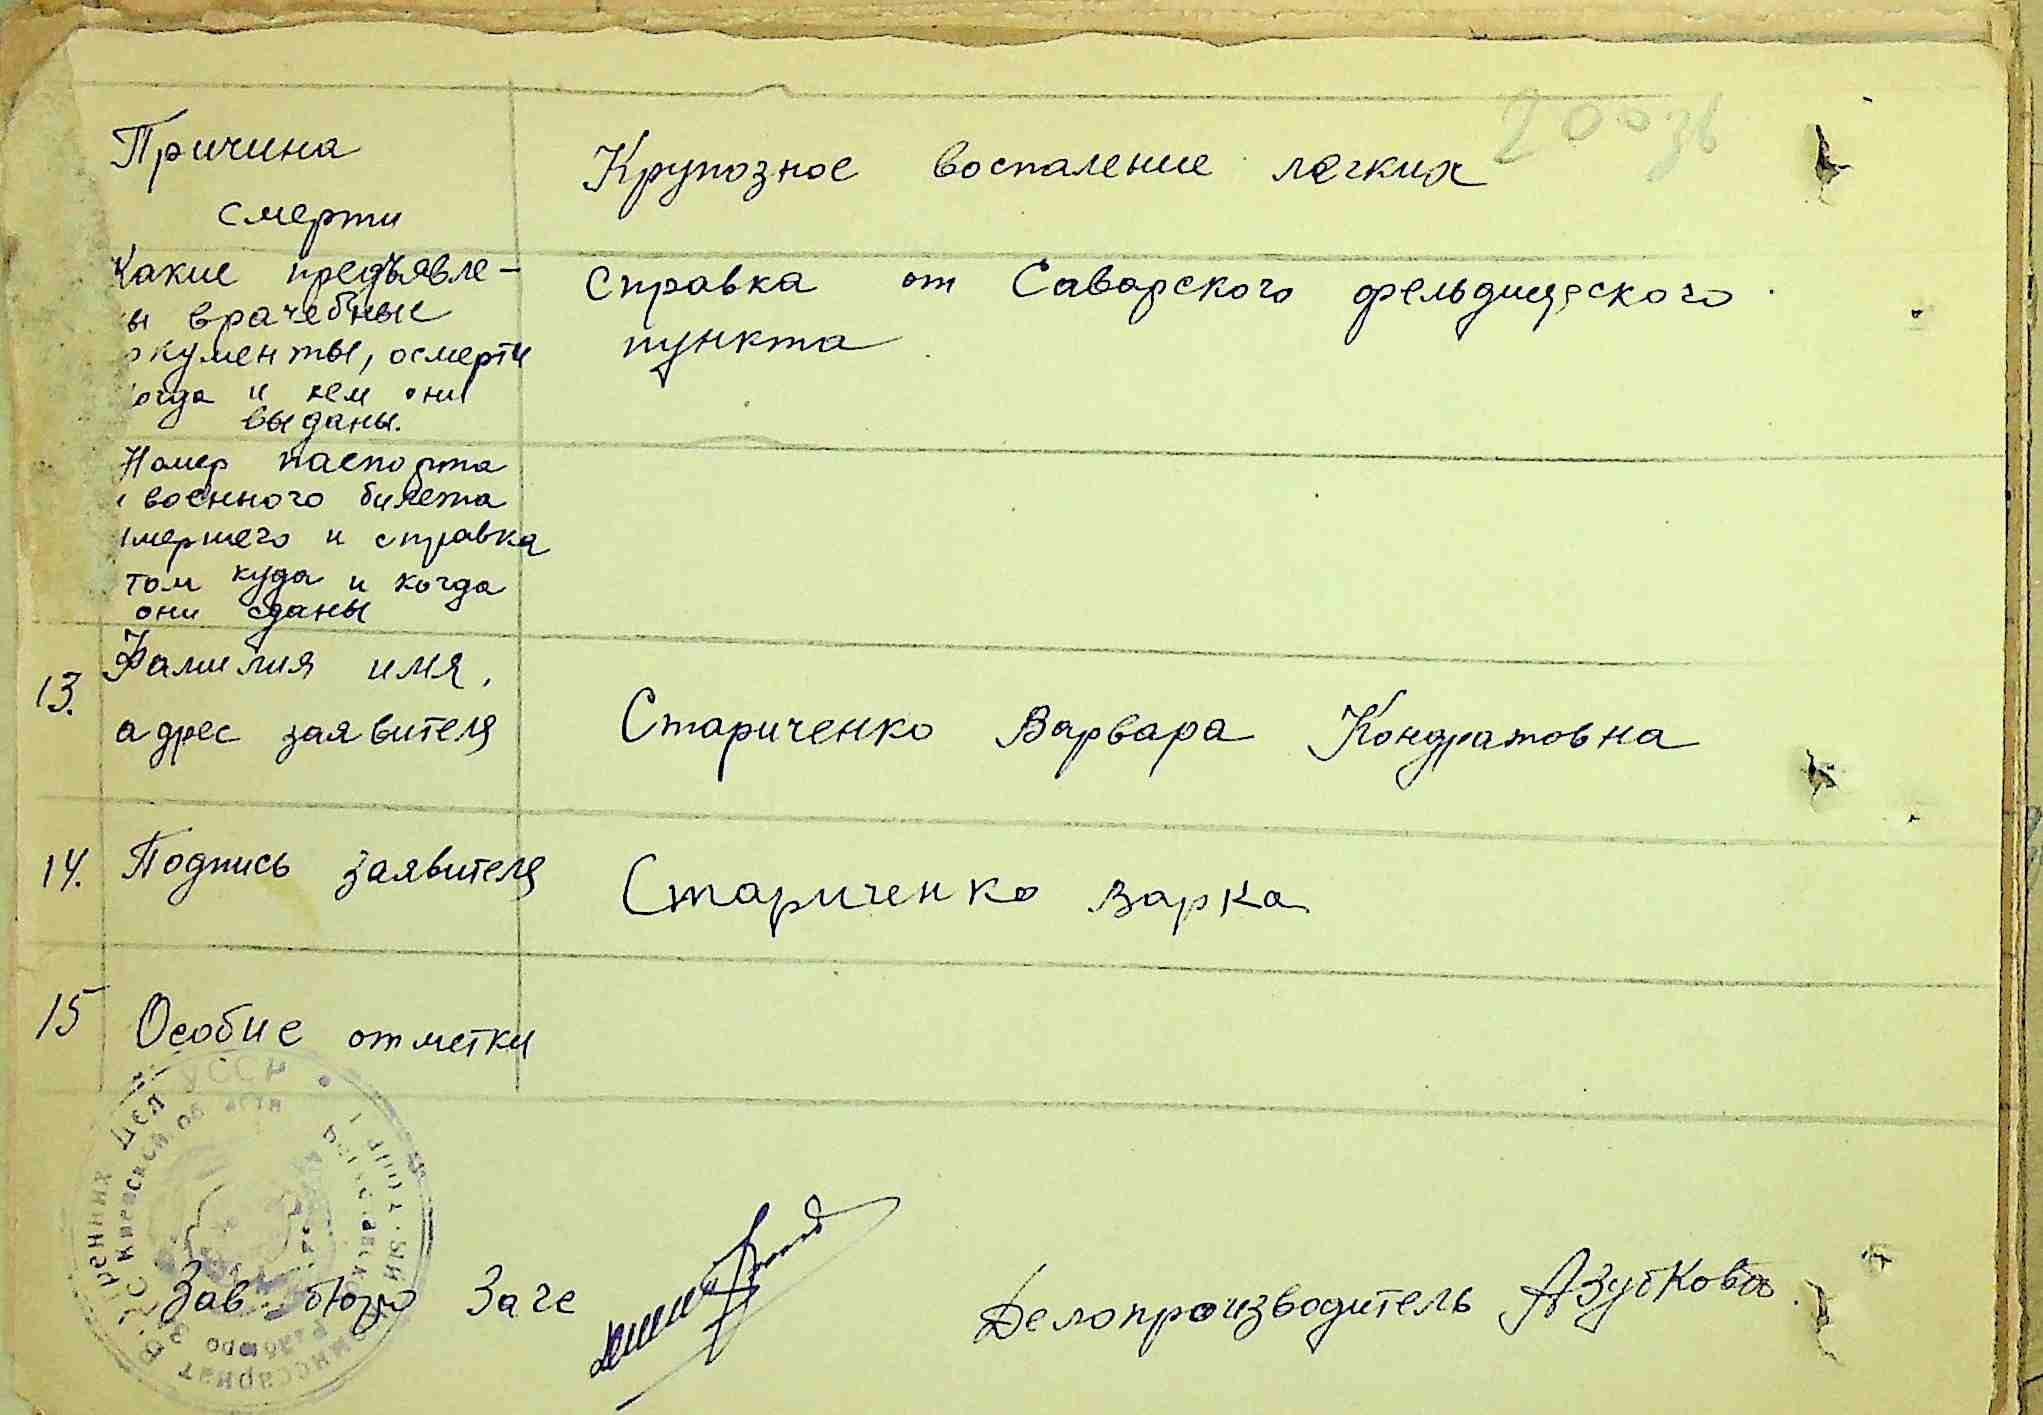 Причина
смерти
Крупозное воспаление легких
Какие предъявле-
ы врачебные
окументы, осмерти
огда и кем они
выданы.
Справка от Саварского фельдшерского
пункта
Номер паспорта
военного билета
мершего и справка
том куда и когда
они сданы
13. Фамилия имя,
адрес заявителя
Стариченко Варвара Кондратовна
14. Подпись заявителя Стариченко Варка
15 Особие отметки
Зав. бюро Загс
Делопроизводитель АЗубкова
Дел УССР
Киевской области